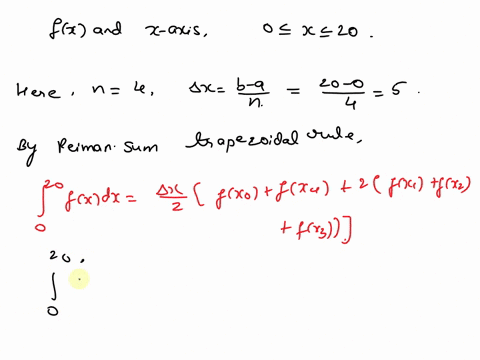 f(x) and x-axis, 0 ≤ x ≤ 20.
Here, n = 4, Δx = b-a/n = 20-0/4 = 5.
By Reiman sum trapezoidal rule,
∫₀²⁰ f(x)dx = Δx/2 { f(x₀) + f(x₄) + 2( f(x₁) + f(x₂)
+ f(x₃))]
∫₀²⁰